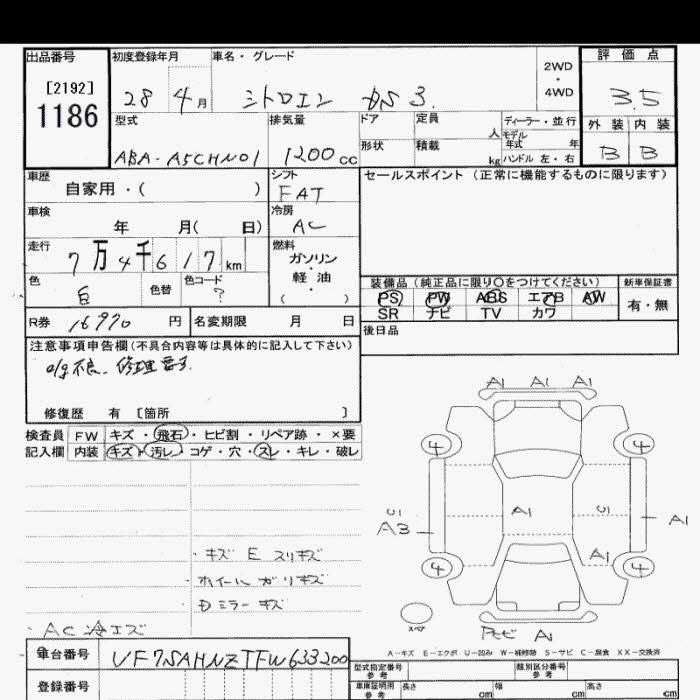 出品番号 初度登録年月 車名・グレード 2WD・4WD 評価点
[2192]
1186
28 4月 シトロエン DS 3. 3.5
型式 排気量 ドア 定員 人 ディーラー・並行 外装 内装
モデル年式 年
ABA-A5CHN01 1200cc 形状 積載 kg ハンドル 左・右 B B
車歴 自家用・( ) シフト FAT セールスポイント(正常に機能するものに限ります)
車検 年 月( 日) 冷房 AC
走行 7万4千617km 燃料 ガソリン・軽油 ( )
色 白 色替 色コード ?
装備品(純正品に限り○をつけてください) 新車保証書
PS PW ABS エアB AW 有・無
SR ナビ TV カワ
R券 16970円 名変期限 月 日 後日品
注意事項申告欄(不具合内容等は具体的に記入して下さい)
不良. 修理要す.
修復歴 有 [箇所 ]
検査員 FW キズ・飛石・ヒビ割・リペア跡・×要
記入欄 内装 キズ・汚レ・コゲ・穴・スレ・キレ・破レ
A1 A1 A1
4 4
U1 A1 U1
A3 A1
A1
4 4
・キズ E スリキズ
・ホイール ガリキズ
・Dミラー キズ
・AC 冷エズ
スペア
A1
A-キズ E-エクボ U-凹み W-補修跡 S-サビ C-腐食 XX-交換済
車台番号 VF7SAHNZTFW633200
型式指定番号 参考 類別区分番号 参考
登録番号 車庫証明用 参考 長さ cm 幅 cm 高さ cm